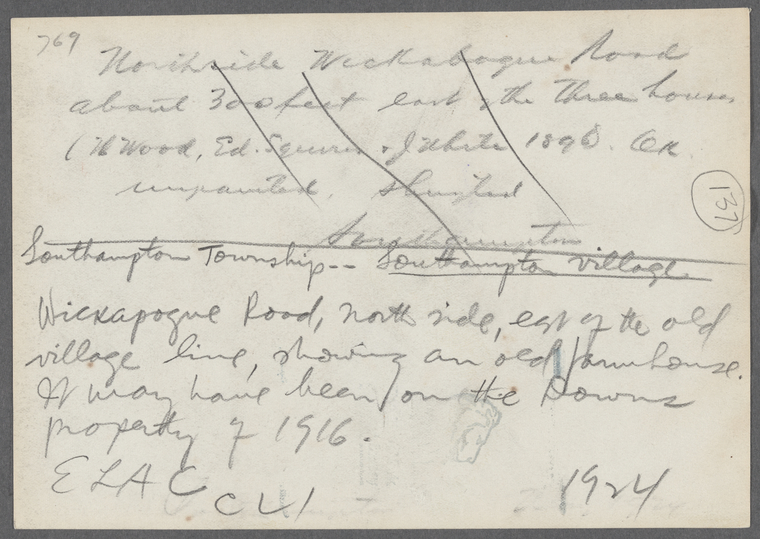 769
North side Wickabogue Road
about 300 feet east of the three houses
(W Wood, Ed. Squires & J White 1896. Ok
unpainted, shingled
Southampton
137
Southampton Township-- Southampton village
Wickapogue Road, north side, east of the old
village line, showing an old farmhouse.
It may have been on the Downs
property of 1916.
ELAC
CL1
1924